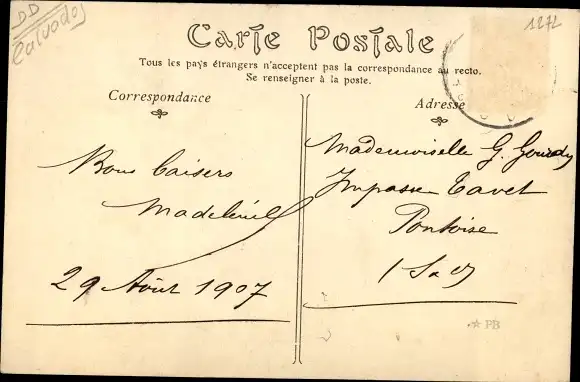 DD
Calvados
1272
Carte Postale
Tous les pays étrangers n'acceptent pas la correspondance au recto.
Se renseigner à la poste.
Correspondance
Bons baisers
29 Août 1907
Adresse
Mademoiselle G.
Impasse Tavet
Pontoise
(S et O)
PB